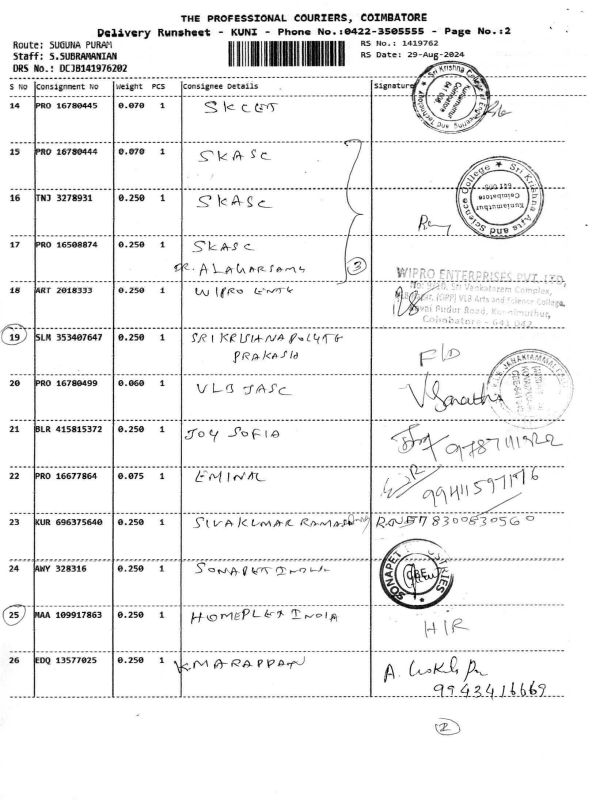 THE PROFESSIONAL COURIERS, COIMBATORE
Delivery Runsheet - KUNI - Phone No.:0422-3505555 - Page No.:2
Route: SUGUNA PURAM
RS No.: 1419762
Staff: S.SUBRAMANIAN
RS Date: 29-Aug-2024
DRS No.: DCJB141976202
S No Consignment No Weight PCS Consignee Details Signature
14 PRO 16780445 0.070 1 SKCET
Sri Krishna College of Engineering and Technology
Kuniamuthur
Coimbatore
15 PRO 16780444 0.070 1 SKASC
16 TNJ 3278931 0.250 1 SKASC
Sri Krishna Arts and Science College
Kuniamuthur
Coimbatore
17 PRO 16508874 0.250 1 SKASC
DR. ALAGARSAMY
3
18 ART 2018333 0.250 1 WIPRO ENTE
WIPRO ENTERPRISES PVT. LTD,
Sri Venkatozem Complex,
VLB Arts and Science College,
Pudur Road, Kuniamuthur,
Coimbatore - 641 042
19 SLM 353407647 0.250 1 SRI KRISHNA POLYTE
PRAKASH
F/D
20 PRO 16780499 0.060 1 VLB JASC
21 BLR 415815372 0.250 1 JOY SOFIA
22 PRO 16677864 0.075 1 EMINAL
23 KUR 696375640 0.250 1 SIVAKUMAR
24 AWY 328316 0.250 1 SONAPET
SONAPET
25 MAA 109917863 0.250 1 HOMEPLEX INDIA
HIR
26 EDQ 13577025 0.250 1 K.MARAPPAN
9943416669
2